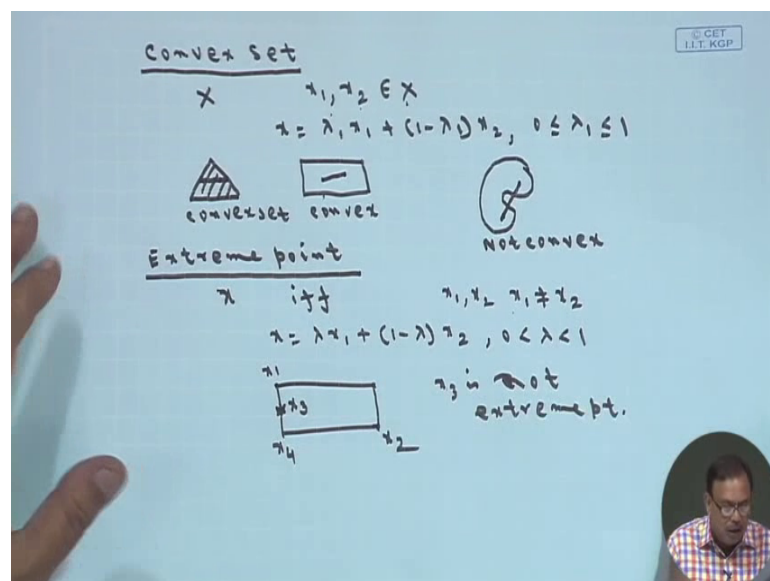 © CET
I.I.T. KGP
Convex Set
X x₁, x₂ ∈ X
x = λ₁x₁ + (1-λ₁)x₂, 0 ≤ λ₁ ≤ 1
convex set convex
Not convex
Extreme point
x iff x₁, x₂ x₁ ≠ x₂
x = λx₁ + (1-λ)x₂, 0 < λ < 1
x₁
x₃
x₃ is not
extreme pt.
x₄ x₂